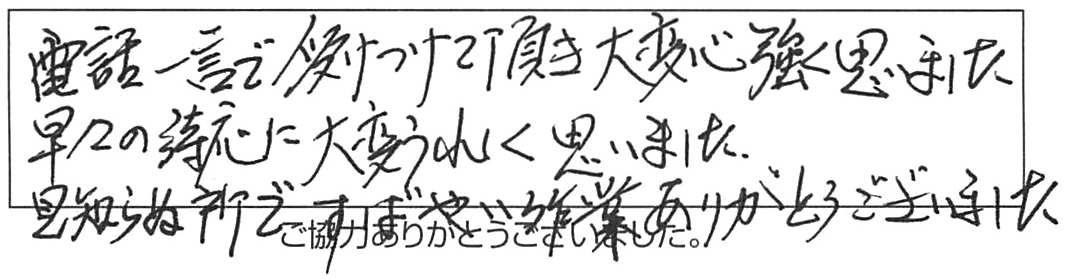 電話一言で受けつけて頂き大変心強く思いました
早々の待応に大変うれしく思いました.
見知らぬ所ですばやい作業ありがとうございました
ご協力ありがとうございました。